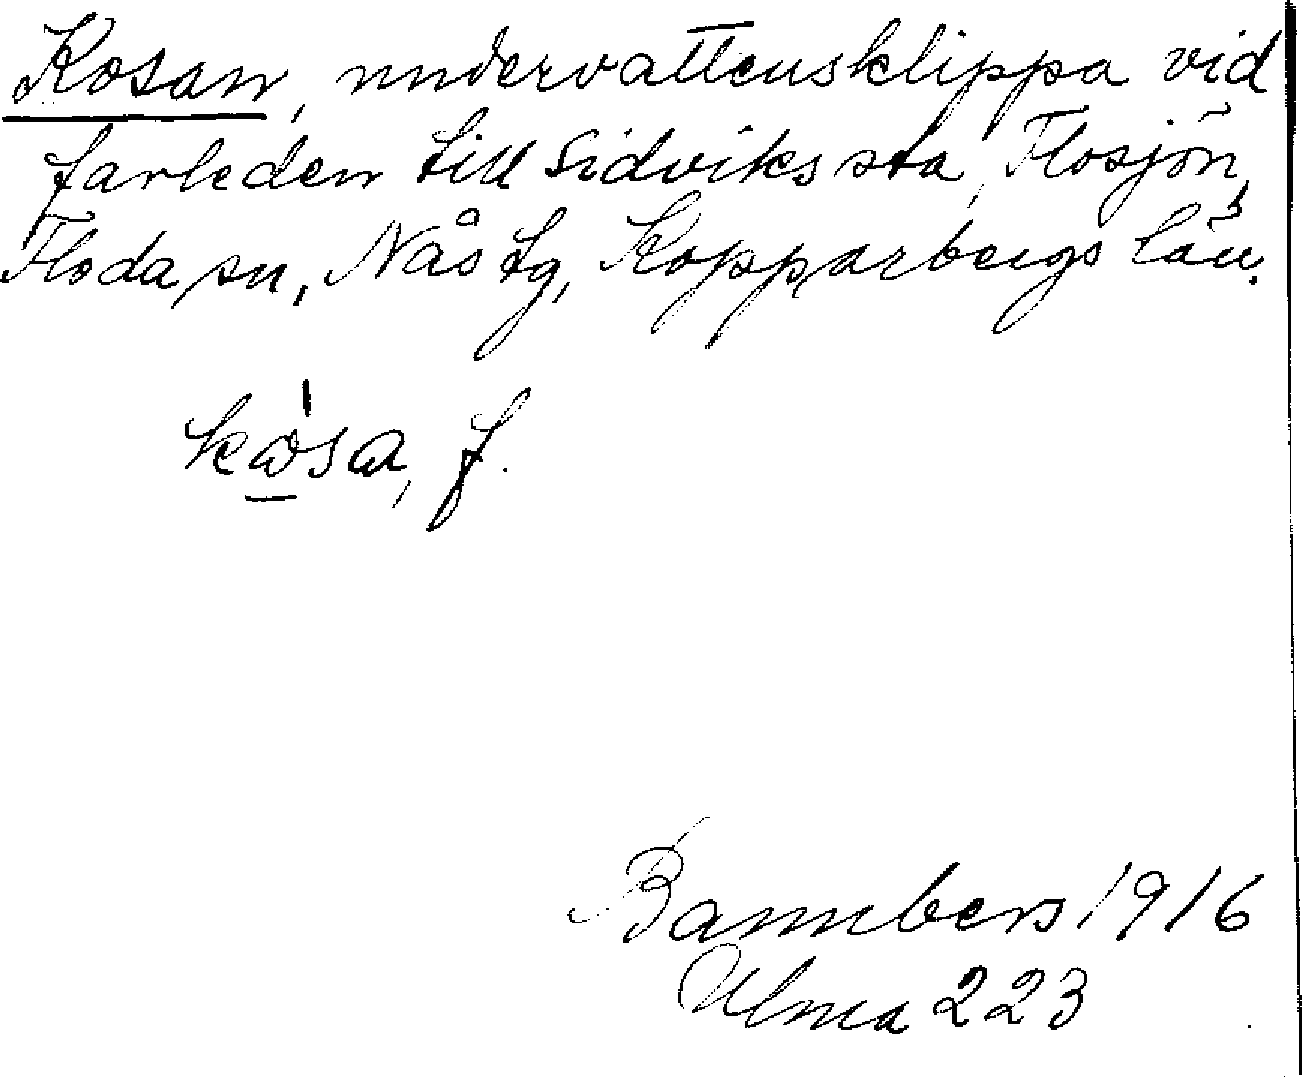 Kosan, undervattensklippa vid
farleden till Sidviks sta, Flosjön,
Floda sn, Nås tg, Kopparbergs län.
kωsa, f.
Bannbers 1916
Ulma 223